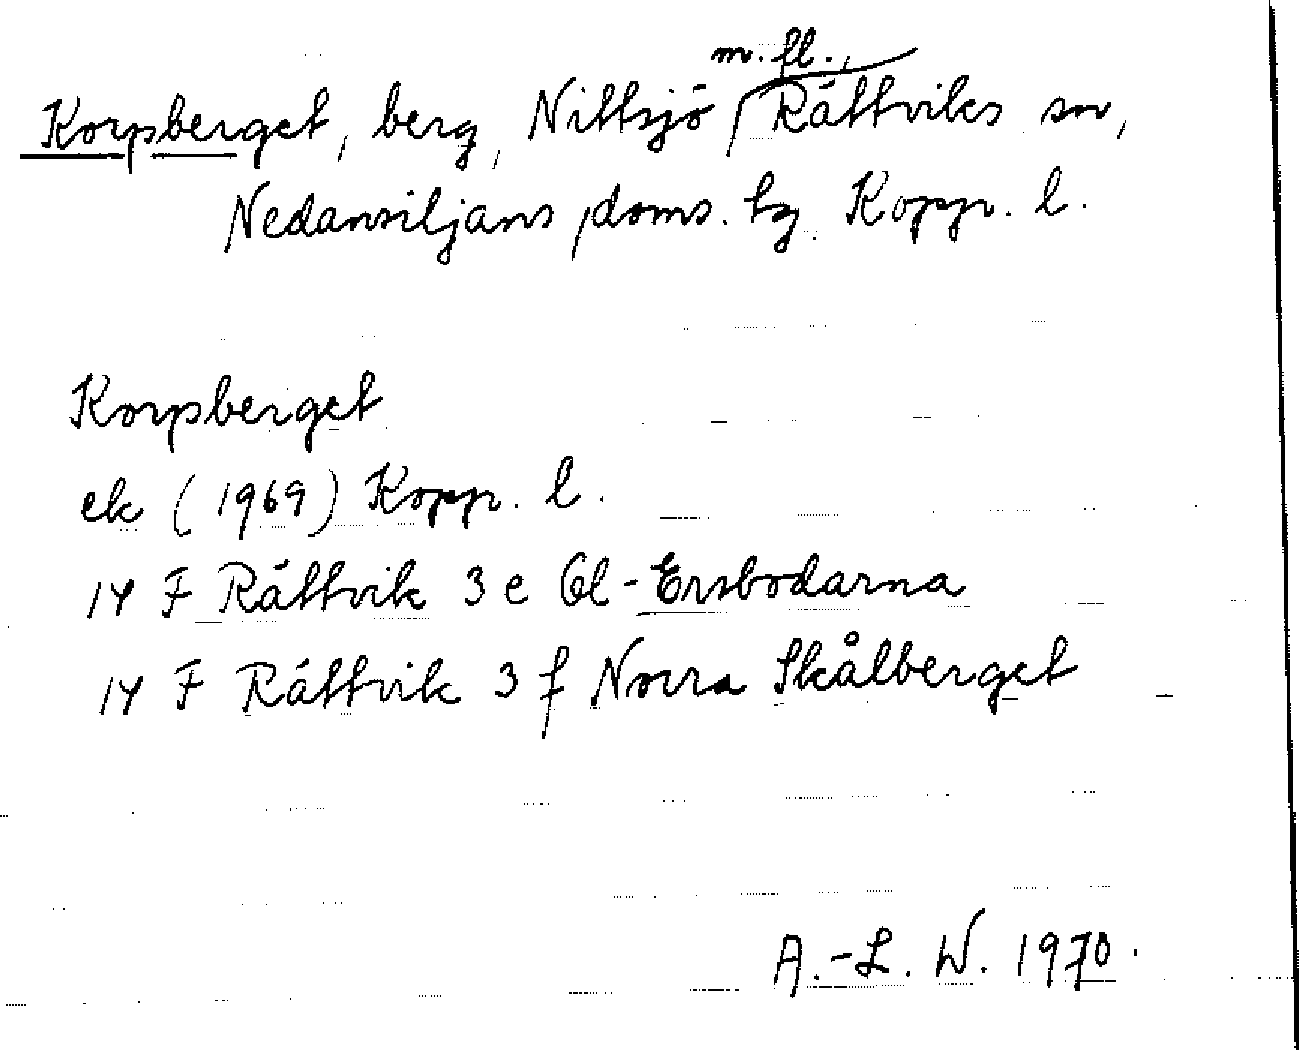 Korpsberget, berg, Nittsjö m. fl., Rättviks sn,
Nedansiljans doms. hg. Kopp. l.
Korpsberget
ek (1969) Kopp. l.
14 F Rättvik 3 e Gl-Ersbodarna
14 F Rättvik 3 f Norra Skålberget
A.-L. W. 1970.